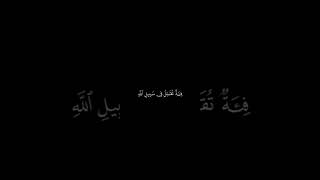 فِئَةٌ تُقَاتِلُ فِي سَبِيلِ اللَّهِ
فِئَةٌ تُقَـ ـبِيلِ ٱللَّهِ